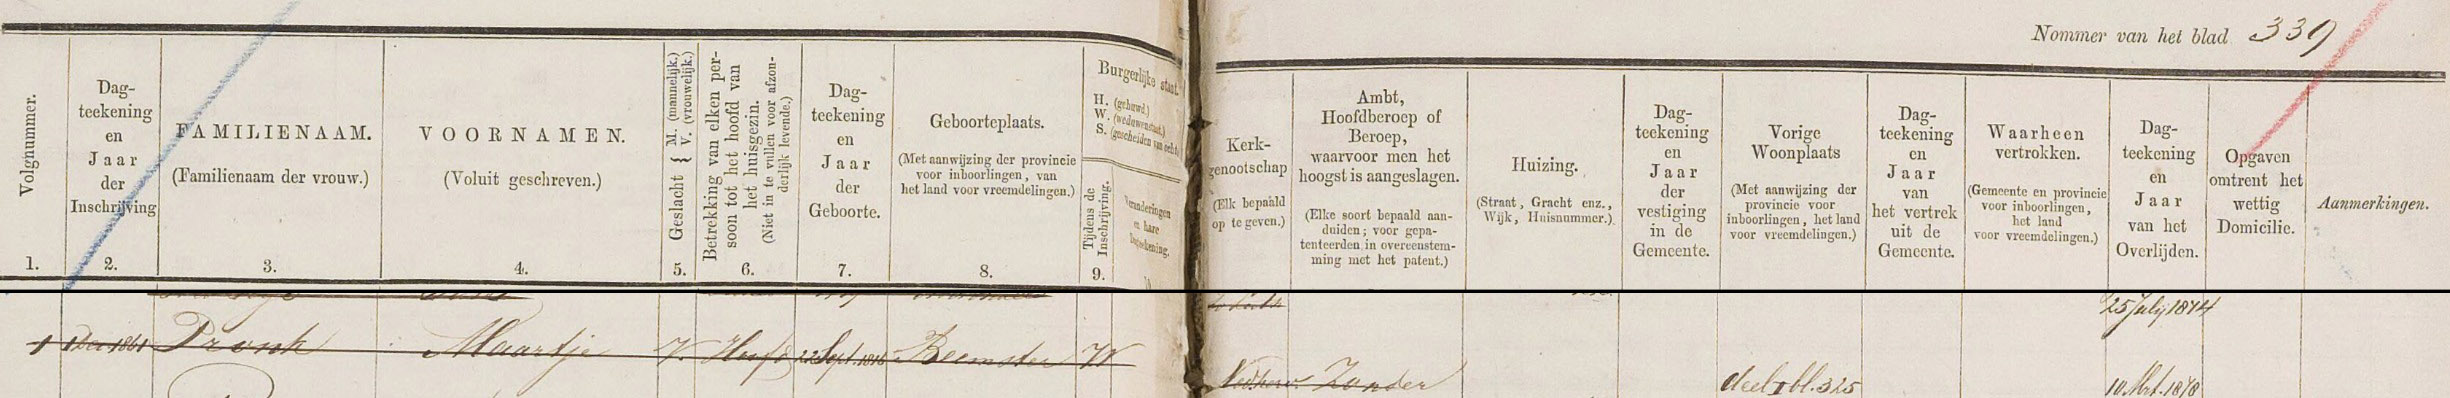 Nommer van het blad 339
Volgnummer.
1.
Dag-
teekening
en
Jaar
der
Inschrijving
2.
FAMILIENAAM.
(Familienaam der vrouw.)
3.
VOORNAMEN.
(Voluit geschreven.)
4.
Geslacht { M. (mannelijk.)
V. (vrouwelijk.)
5.
Betrekking van elken per-
soon tot het hoofd van
het huisgezin.
(Niet in te vullen voor afzon-
derlijk levende.)
6.
Dag-
teekening
en
Jaar
der
Geboorte.
7.
Geboorteplaats.
(Met aanwijzing der provincie
voor inboorlingen, van
het land voor vreemdelingen.)
8.
Burgerlijke staat.
H. (gehuwd.)
W. (weduwenstaat.)
S. (gescheiden van echt.)
Tijdens de
Inschrijving.
9.
Veranderingen
en hare
Kerk-
genootschap
(Elk bepaald
op te geven.)
Ambt,
Hoofdberoep of
Beroep,
waarvoor men het
hoogst is aangeslagen.
(Elke soort bepaald aan-
duiden; voor gepa-
tenteerden in overeenstem-
ming met het patent.)
Huizing.
(Straat, Gracht enz.,
Wijk, Huisnummer.)
Dag-
teekening
en
Jaar
der
vestiging
in de
Gemeente.
Vorige
Woonplaats
(Met aanwijzing der
provincie voor
inboorlingen, het land
voor vreemdelingen.)
Dag-
teekening
en
Jaar
van
het vertrek
uit de
Gemeente.
Waarheen
vertrokken.
(Gemeente en provincie
voor inboorlingen,
het land
voor vreemdelingen.)
Dag-
teekening
en
Jaar
van het
Overlijden.
Opgaven
omtrent het
wettig
Domicilie.
Aanmerkingen.
25 July 1874
1 1 Dec 1861 Pronk Maartje V. Hoofd 22 Sept. 1816 Beemster W
Ned herv. Zonder deel 1 bl. 325 10 Mrt. 1878